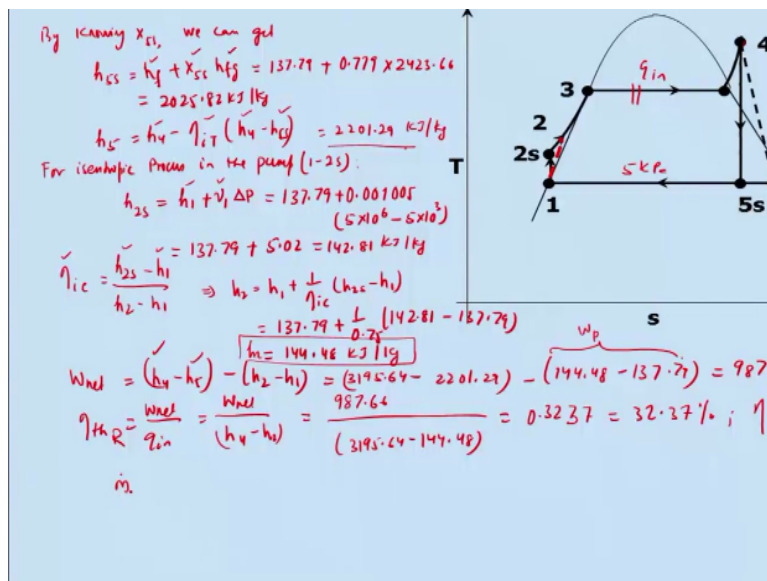 By Knowing x5s, we can get
h5s = hf + x5s hfg = 137.79 + 0.779 × 2423.66
= 2025.82 KJ/kg
h5 = h4 - ηiT (h4 - h5s) = 2201.29 KJ/kg
For isentropic Process in the pump (1-2s):
h2s = h1 + v1 ΔP = 137.79 + 0.001005
(5×10⁶ - 5×10³)
= 137.79 + 5.02 = 142.81 KJ/kg
ηic = (h2s - h1) / (h2 - h1) ⇒ h2 = h1 + 1/ηic (h2s - h1)
= 137.79 + 1/0.75 (142.81 - 137.79)
h2 = 144.48 KJ/kg
Wnet = (h4 - h5) - (h2 - h1) = (3195.64 - 2201.29) - (144.48 - 137.79) = 987
WP
ηthR = Wnet / qin = Wnet / (h4 - h2) = 987.66 / (3195.64 - 144.48) = 0.3237 = 32.37% ; η
ṁ.
T
4
3
qin
2
2s
5 KPa
1
5s
s